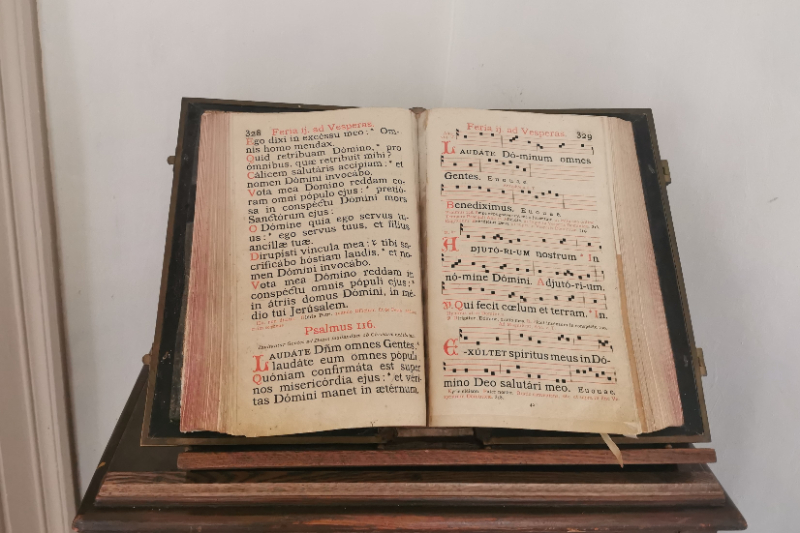 328 Feria ij. ad Vesperas.
Ego dixi in excéssu meo: * Om-
nis homo mendax.
Quid retríbuam Dómino, * pro
ómnibus, quæ retríbuit mihi?
Cálicem salutáris accípiam: * et
nomen Dómini invocábo.
Vota mea Dómino reddam co-
ram omni pópulo ejus: * pretió-
sa in conspéctu Dómini mors
Sanctórum ejus:
O Dómine quia ego servus tu-
us: * ego servus tuus, et fílius
ancíllæ tuæ.
Dirupísti víncula mea: * tibi sa-
crificábo hóstiam laudis, * et no-
men Dómini invocábo.
Vota mea Dómino reddam in
conspéctu omnis pópuli ejus: *
in átriis domus Dómini, in mé-
dio tui Jerúsalem.
Psalmus 116.
LAUDÁTE Dñm omnes Gentes, *
laudáte eum omnes pópuli
Quóniam confirmáta est super
nos misericórdia ejus: * et véri-
tas Dómini manet in ætérnum.
Feria ij. ad Vesperas. 329
LAUDÁTE Dó-minum omnes
Gentes. E u o u a e.
Benedíximus. E u o u a e.
ADJUTÓ-RI-UM nostrum * In
nó-mine Dómini. Adjutó-ri-um.
℣. Qui fecit cœlum et terram. * In.
E-XÚLTET spíritus meus in Dó-
mino Deo salutári meo. E u o u a e.